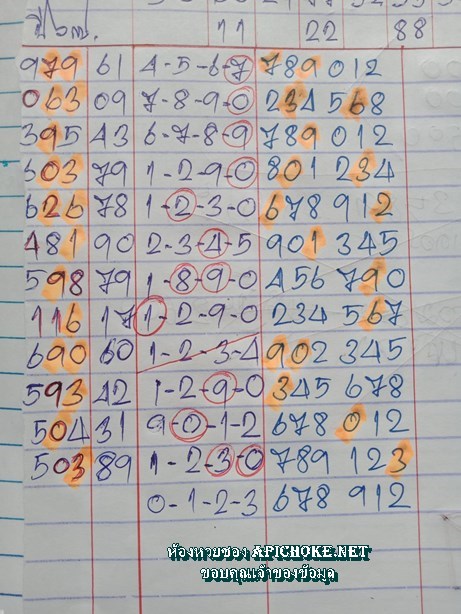 ปีโต. 11 22 88
979 61 4-5-6-7 789 012
063 09 7-8-9-0 234 568
395 43 6-7-8-9 789 012
603 79 1-2-9-0 801 234
626 78 1-2-3-0 678 912
481 90 2-3-4-5 901 345
598 79 1-8-9-0 456 790
116 17 1-2-9-0 234 567
690 60 1-2-3-4 902 345
593 42 1-2-9-0 345 678
504 31 9-0-1-2 678 012
503 89 1-2-3-0 789 123
0-1-2-3 678 912
ห้องหวยซอง APICHOKE.NET
ขอบคุณเจ้าของข้อมูล